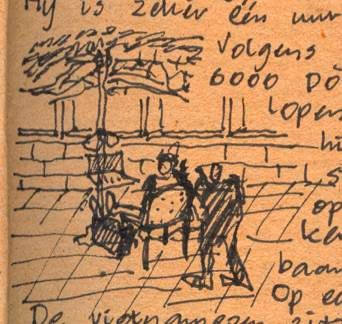 Hij is zeker één uur
Volgens
6000 DO
lopen
hi
S
op
ke
baan
Op ee
De vietnamezen zitt